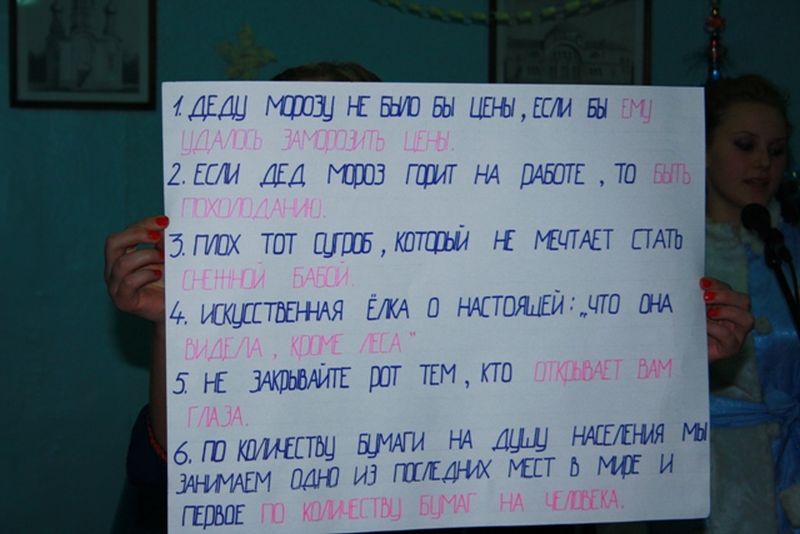 1. ДЕДУ МОРОЗУ НЕ БЫЛО БЫ ЦЕНЫ, ЕСЛИ БЫ ЕМУ
УДАЛОСЬ ЗАМОРОЗИТЬ ЦЕНЫ.
2. ЕСЛИ ДЕД МОРОЗ ГОРИТ НА РАБОТЕ, ТО БЫТЬ
ПОХОЛОДАНИЮ.
3. ПЛОХ ТОТ СУГРОБ, КОТОРЫЙ НЕ МЕЧТАЕТ СТАТЬ
СНЕЖНОЙ БАБОЙ.
4. ИСКУССТВЕННАЯ ЁЛКА О НАСТОЯЩЕЙ: „ЧТО ОНА
ВИДЕЛА, КРОМЕ ЛЕСА"
5. НЕ ЗАКРЫВАЙТЕ РОТ ТЕМ, КТО ОТКРЫВАЕТ ВАМ
ГЛАЗА.
6. ПО КОЛИЧЕСТВУ БУМАГИ НА ДУШУ НАСЕЛЕНИЯ МЫ
ЗАНИМАЕМ ОДНО ИЗ ПОСЛЕДНИХ МЕСТ В МИРЕ И
ПЕРВОЕ ПО КОЛИЧЕСТВУ БУМАГ НА ЧЕЛОВЕКА.